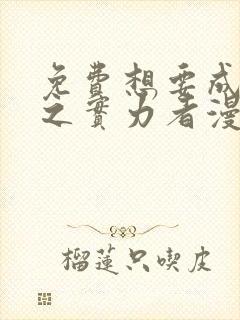 免費想要成
之實力者漫
榴蓮只喫皮